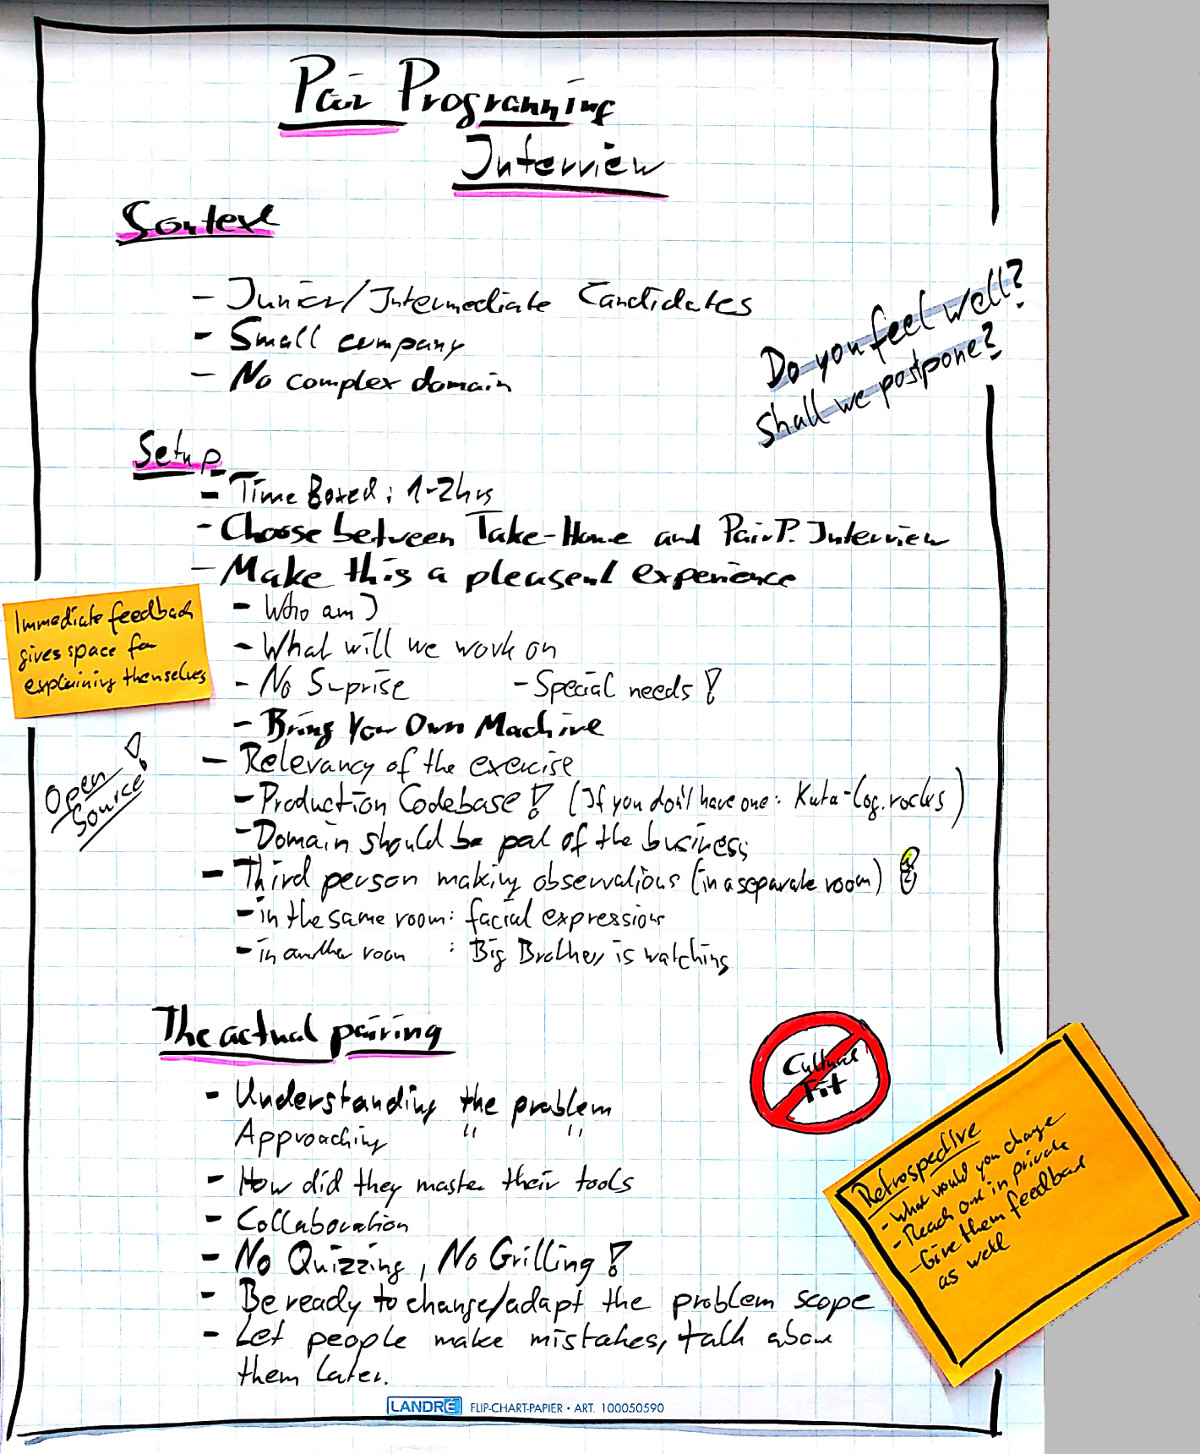 Pair Programming
Interview
Context
- Junior/Intermediate Candidates
- Small company
- No complex domain
Do you feel well?
Shall we postpone?
Setup
- Time Boxed: 1-2hrs
- Choose between Take-Home and Pair P. Interview
- Make this a pleasent experience
- Who am I
- What will we work on
- No Suprise - Special needs!
- Bring Your Own Machine
Immediate feedback
gives space for
explaining themselves
Open
Source!
- Relevancy of the exercise
- Production Codebase! (If you don't have one: Kata-Log.rocks)
- Domain should be part of the business
- Third person making observations (in a separate room)
- in the same room: facial expressions
- in another room : Big Brother is watching
The actual pairing
Cultural
Fit
- Understanding the problem
Approaching " "
- How did they master their tools
- Collaboration
- No Quizzing, No Grilling!
- Be ready to change/adapt the problem scope
- Let people make mistakes, talk about
them later.
Retrospective
- What would you change
- Reach out in private
- Give them feedback
as well
LANDRÉ FLIP-CHART-PAPIER • ART. 100050590